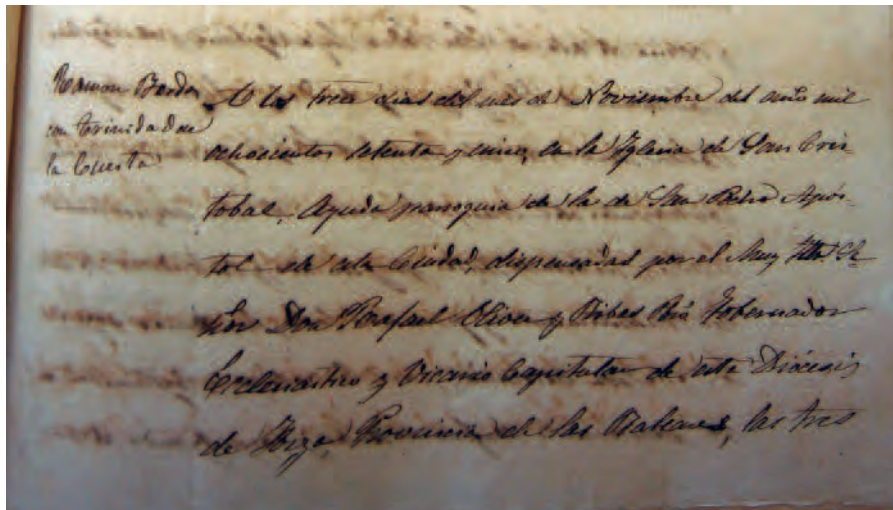 Ramon Borda
con Trinidad de
la Cuesta
A los tres dias del mes de Noviembre del año mil
ochocientos setenta y cinco, en la Iglesia de San Cris-
tobal, Ayuda parroquia de la de San Pedro Após-
tol de esta Ciudad, dispensadas por el Muy Ilto. Se-
ñor Don Rafael Oliver y Ribas Pro Gobernador
Eclesiastico y Vicario Capitular de esta Diócesis
de Ibiza Provincia de las Baleares, las tres